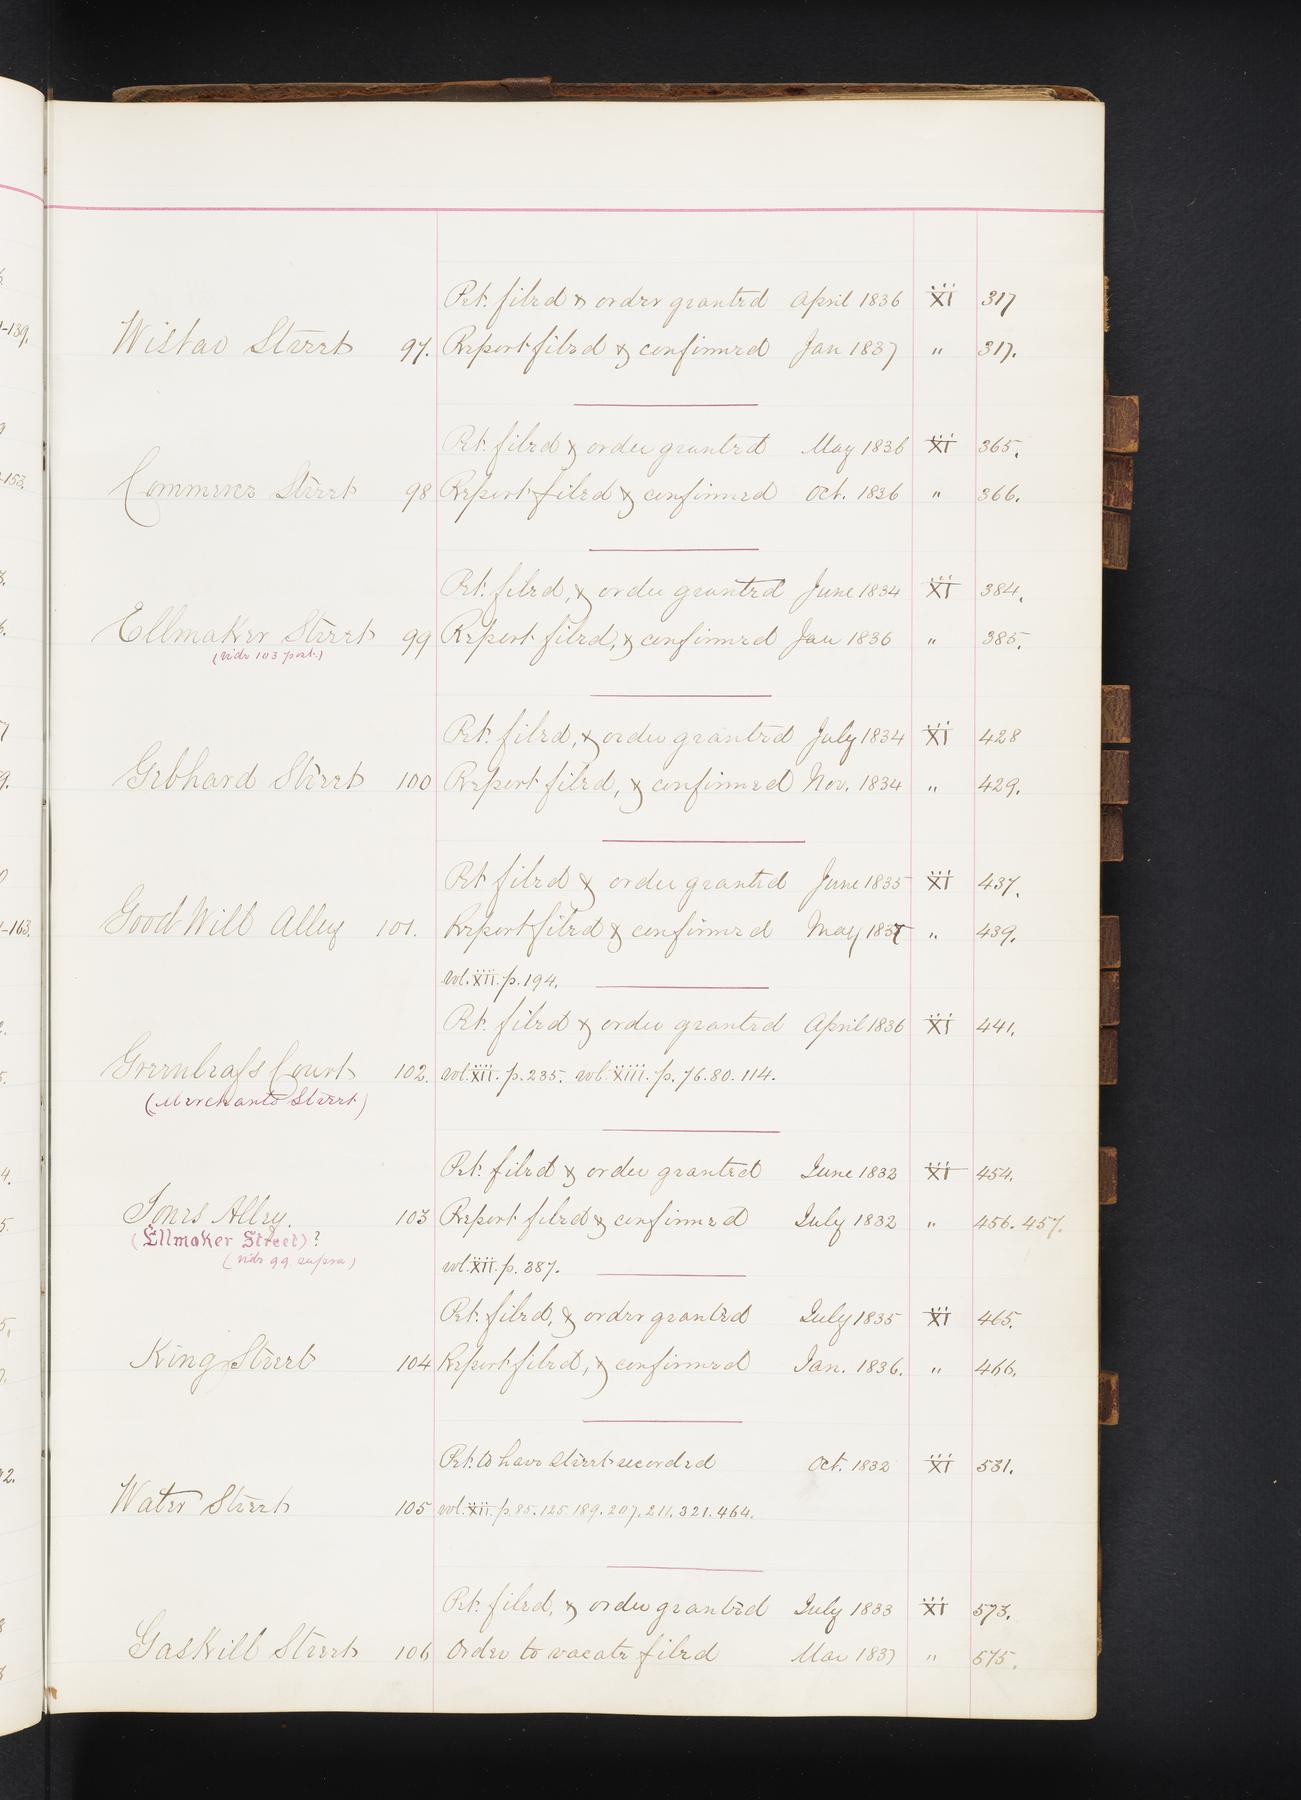 Pet. filed & order granted April 1836 XI 317
Wistar Street 97. Report filed & confirmed Jan 1837 " 317.
Pet. filed & order granted May 1836 XI 365.
Commerce Street 98 Report filed & confirmed Oct. 1836 " 366.
Pet. filed, & order granted June 1834 XI 384.
Ellmaker Street 99 Report filed, & confirmed Jan 1836 " 385.
(vide 103 post.)
Pet. filed, & order granted July 1834 XI 428
Gebhard Street 100 Report filed, & confirmed Nov. 1834 " 429.
Pet filed & order granted June 1835 XI 437.
Good Will Alley 101. Report filed & confirmed May 1837 " 439.
vol. XII. p. 194.
Pet. filed & order granted April 1836 XI 441.
Greenleafs Court 102. vol. XII. p. 235. vol. XIII. p. 76. 80. 114.
(Merchants Street)
Pet. filed & order granted June 1832 XI 454.
Jones Alley. 103 Report filed & confirmed July 1832 " 456. 457.
(Ellmaker Street)?
(vide 99 supra)
vol. XII. p. 387.
Pet. filed, & order granted July 1835 XI 465.
King Street 104 Report filed, & confirmed Jan. 1836. " 466.
Pet. to have street recorded Oct. 1832 XI 531.
Water Street 105 vol. XII. p. 85. 125. 189. 207. 211. 321. 464.
Pet. filed, & order granted July 1833 XI 573.
Gaskill Street 106 Order to vacate filed Mar 1837 " 575.
-139.
-153.
-163.